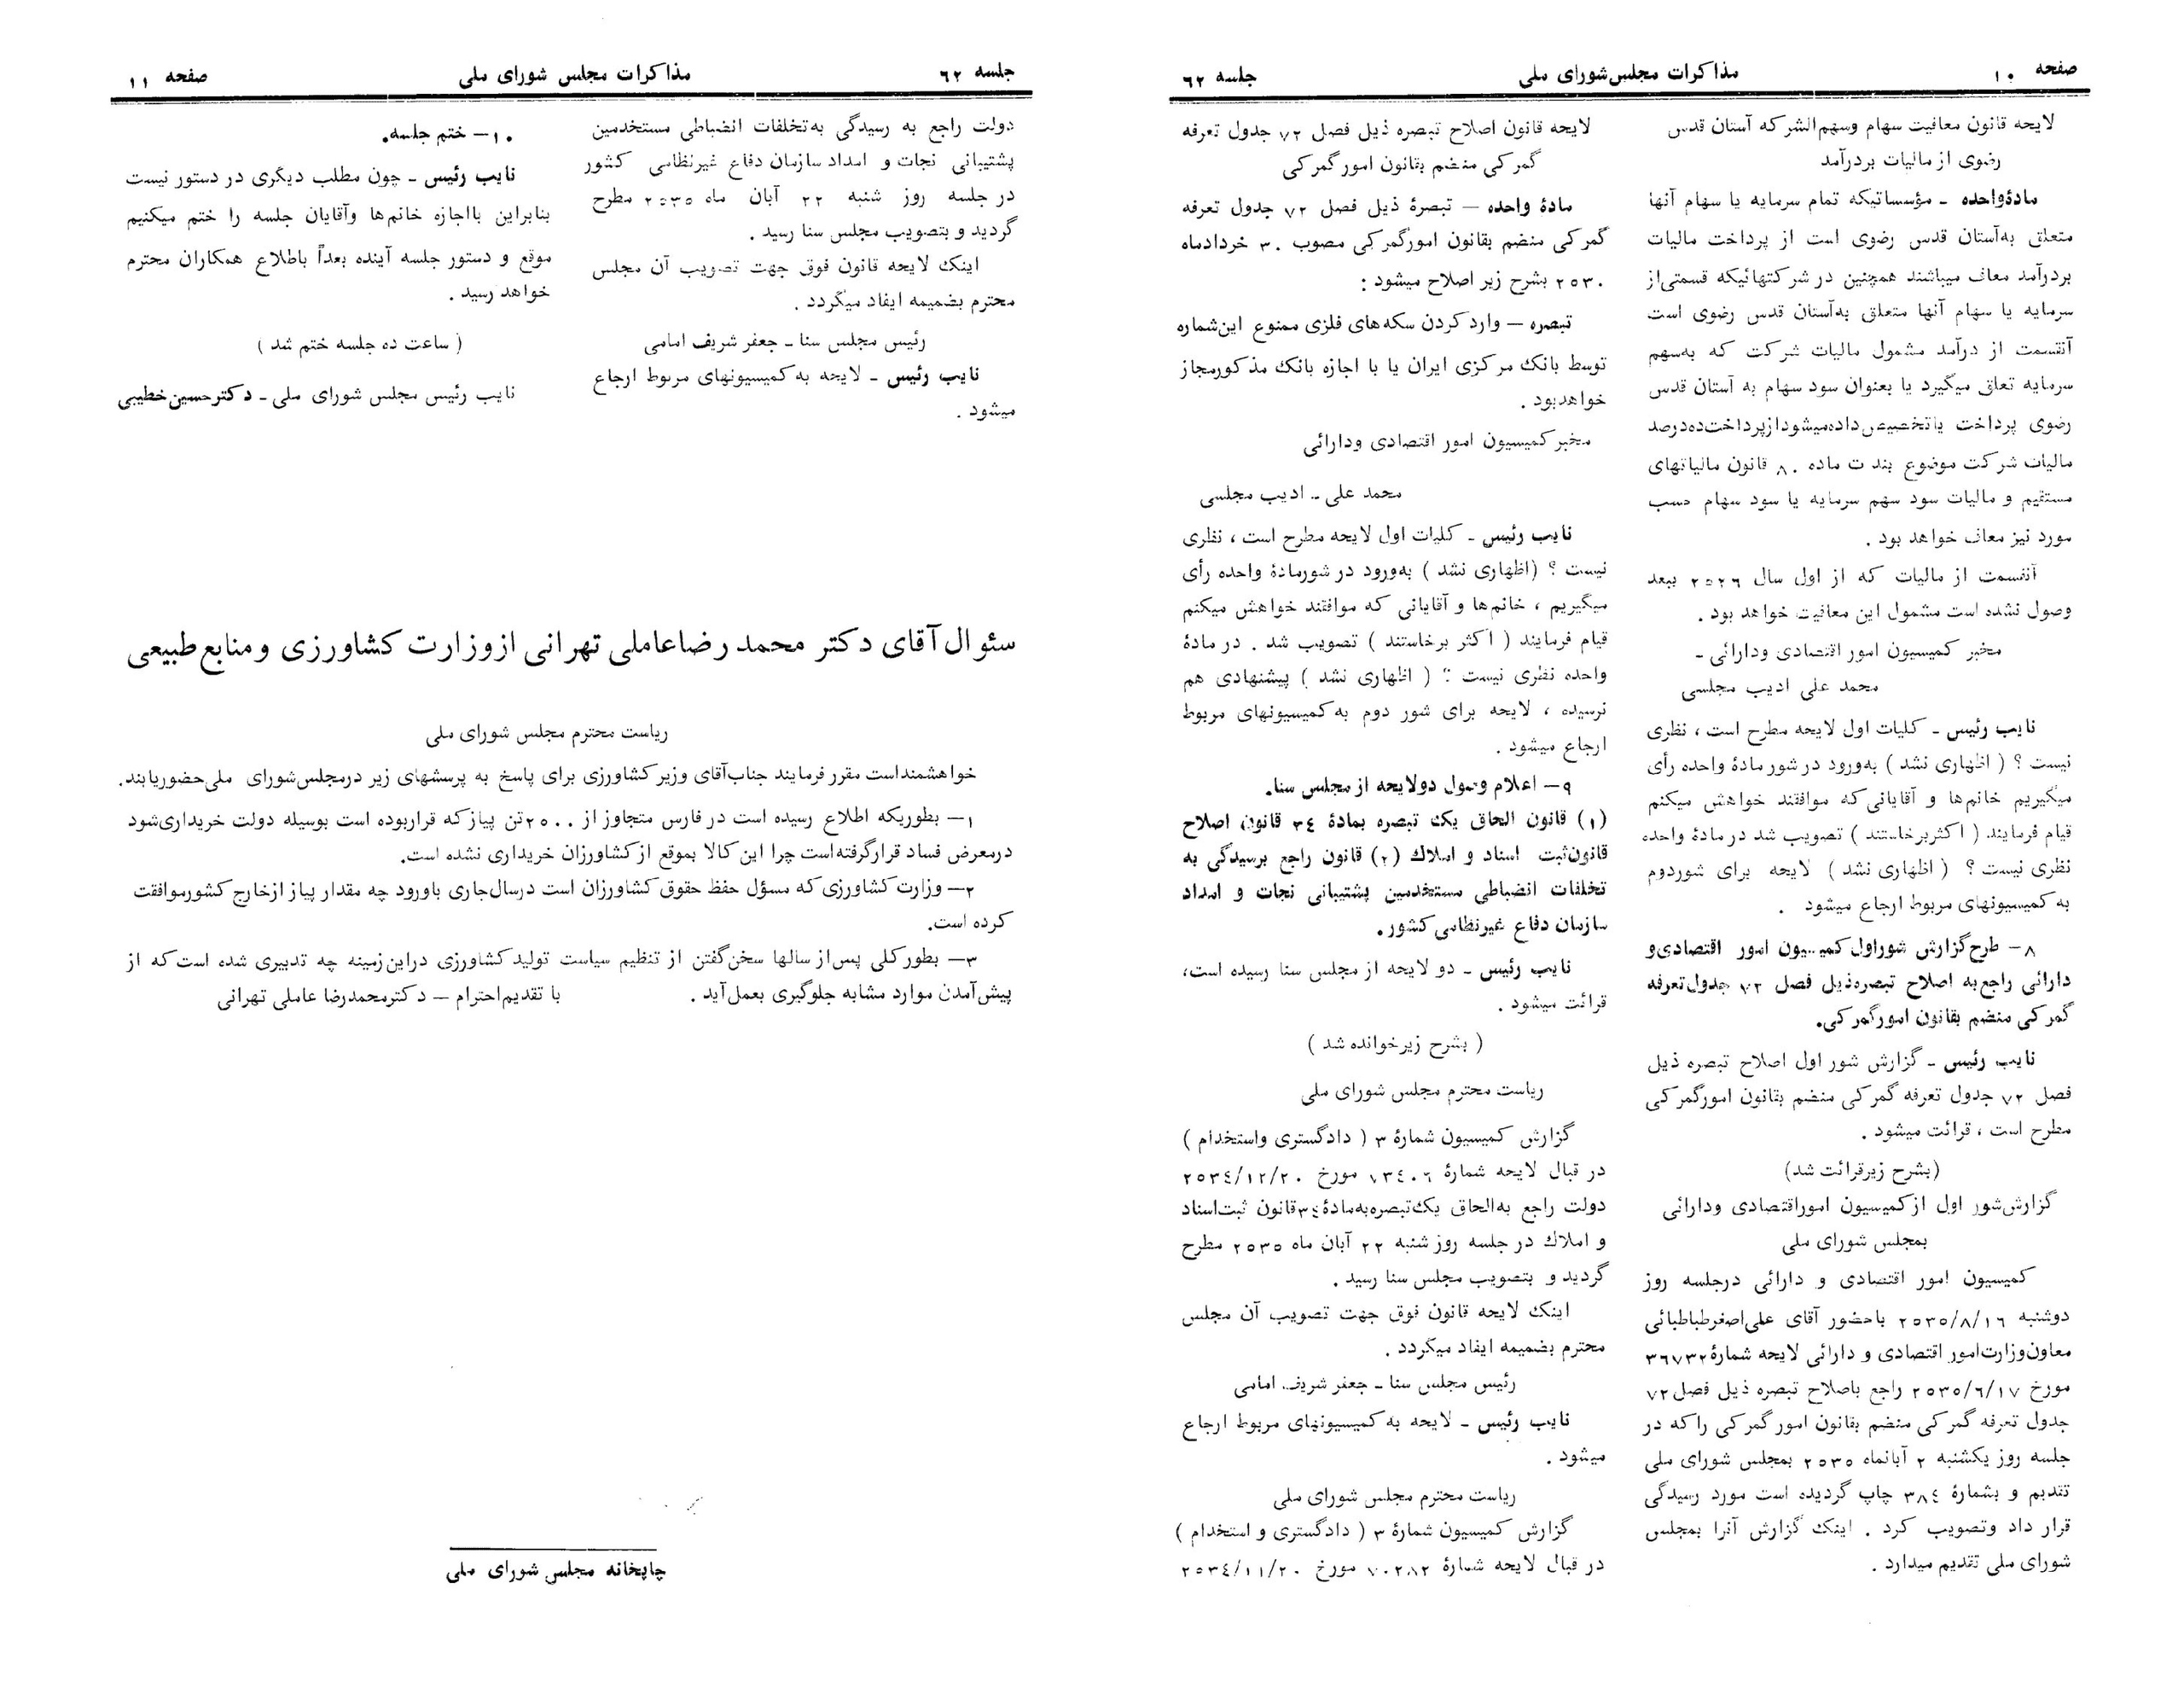 صفحه ۱۰
مذاکرات مجلس شورای ملی
جلسه ۶۲
لایحه قانون معافیت سهام وسهم‌الشرکه آستان قدس
رضوی از مالیات بردرآمد
مادۀ‌واحده ـ مؤسساتیکه تمام سرمایه یا سهام آنها
متعلق به‌آستان قدس رضوی است از پرداخت مالیات
بردرآمد معاف میباشند همچنین در شرکتهائیکه قسمتی‌از
سرمایه یا سهام آنها متعلق به‌آستان قدس رضوی است
آنقسمت از درآمد مشمول مالیات شرکت که به‌سهم
سرمایه تعلق میگیرد یا بعنوان سود سهام به آستان قدس
رضوی پرداخت یاتخصیص‌داده‌میشودازپرداخت‌ده‌درصد
مالیات شرکت موضوع بند ت ماده ۸۰ قانون مالیاتهای
مستقیم و مالیات سود سهم سرمایه یا سود سهام حسب
مورد نیز معاف خواهد بود .
آنقسمت از مالیات که از اول سال ۲۵۲۶ ببعد
وصول نشده است مشمول این معافیت خواهد بود .
مخبر کمیسیون امور اقتصادی ودارائی ـ
محمد علی ادیب مجلسی
نایب رئیس ـ کلیات اول لایحه مطرح است ، نظری
نیست ؟ ( اظهاری نشد ) به‌ورود در شور مادۀ واحده رأی
میگیریم خانم‌ها و آقایانی‌که موافقتند خواهش میکنم
قیام فرمایند. ( اکثربرخاستند ) تصویب شد در مادۀ واحده
نظری نیست ؟ ( اظهاری نشد ) لایحه برای شوردوم
به کمیسیونهای مربوط ارجاع میشود .
۸ـ طرح‌گزارش شوراول کمیسیون امور اقتصادی‌و
دارائی راجع‌به اصلاح تبصره‌ذیل فصل ۷۲ جدول‌تعرفه
گمرکی منضم بقانون امورگمرکی.
نایب رئیس ـ گزارش شور اول اصلاح تبصره ذیل
فصل ۷۲ جدول تعرفه گمرکی منضم بقانون امورگمرکی
مطرح است ، قرائت میشود .
(بشرح زیرقرائت شد)
گزارش‌شور اول ازکمیسیون اموراقتصادی ودارائی
بمجلس شورای ملی
کمیسیون امور اقتصادی و دارائی درجلسه روز
دوشنبه ۲۵۳۵/۸/۱۶ باحضور آقای علی‌اصغرطباطبائی
معاون‌وزارت‌امور اقتصادی و دارائی لایحه شمارۀ ۳۶۷۳۲
مورخ ۲۵۳۵/۶/۱۷ راجع باصلاح تبصره ذیل فصل ۷۲
جدول تعرفه گمرکی منضم بقانون امورگمرکی راکه در
جلسه روز یکشنبه ۲ آبانماه ۲۵۳۵ بمجلس شورای ملی
تقدیم و بشمارۀ ۳۸۴ چاپ گردیده است مورد رسیدگی
قرار داد وتصویب کرد . اینک گزارش آنرا بمجلس
شورای ملی تقدیم میدارد .
لایحه قانون اصلاح تبصره ذیل فصل ۷۲ جدول تعرفه
گمرکی منضم بقانون امورگمرکی
مادۀ واحده ـ تبصرۀ ذیل فصل ۷۲ جدول تعرفه
گمرکی منضم بقانون امورگمرکی مصوب ۳۰ خردادماه
۲۵۳۰ بشرح زیر اصلاح میشود :
تبصره ـ واردکردن سکه‌های فلزی ممنوع این‌شماره
توسط بانک مرکزی ایران یا با اجازه بانک مذکورمجاز
خواهدبود .
مخبرکمیسیون امور اقتصادی ودارائی
محمد علی ـ ادیب مجلسی
نایب رئیس ـ کلیات اول لایحه مطرح است ، نظری
نیست ؟ (اظهاری نشد ) به‌ورود در شورمادۀ واحده رأی
میگیریم ، خانم‌ها و آقایانی که موافقتند خواهش میکنم
قیام فرمایند ( اکثر برخاستند ) تصویب شد . در مادۀ
واحده نظری نیست ؟ ( اظهاری نشد ) پیشنهادی هم
نرسیده ، لایحه برای شور دوم به‌کمیسیونهای مربوط
ارجاع میشود .
۹ـ اعلام وصول دولایحه از مجلس سنا.
(۱) قانون الحاق یک تبصره بمادۀ ۳۴ قانون اصلاح
قانون‌ثبت اسناد و املاک (۲) قانون راجع برسیدگی به
تخلفات انضباطی مستخدمین پشتیبانی نجات و امداد
سازمان دفاع غیرنظامی کشور.
نایب رئیس ـ دو لایحه از مجلس سنا رسیده است،
قرائت میشود .
( بشرح زیرخوانده شد )
ریاست محترم مجلس شورای ملی
گزارش کمیسیون شمارۀ ۳ ( دادگستری واستخدام )
در قبال لایحه شمارۀ ۷۳۴۰۶ مورخ ۲۵۳۴/۱۲/۲۰
دولت راجع به‌الحاق یک‌تبصره‌به‌مادۀ ۳۴ قانون ثبت‌اسناد
و املاک در جلسه روز شنبه ۲۲ آبان ماه ۲۵۳۵ مطرح
گردید و بتصویب مجلس سنا رسید .
اینک لایحه قانون فوق جهت تصویب آن مجلس
محترم بضمیمه ایفاد میگردد .
رئیس مجلس سنا ـ جعفر شریف امامی
نایب رئیس ـ لایحه به‌کمیسیونهای مربوط ارجاع
میشود .
ریاست محترم مجلس شورای ملی
گزارش کمیسیون شمارۀ ۳ ( دادگستری و استخدام )
در قبال لایحه شمارۀ ۷۰۲۸۲ مورخ ۲۵۳۴/۱۱/۲۰
جلسه ۶۲
مذاکرات مجلس شورای ملی
صفحه ۱۱
دولت راجع به رسیدگی به‌تخلفات انضباطی مستخدمین
پشتیبانی نجات و امداد سازمان دفاع غیرنظامی کشور
در جلسه روز شنبه ۲۲ آبان ماه ۲۵۳۵ مطرح
گردید و بتصویب مجلس سنا رسید .
اینک لایحه قانون فوق جهت تصویب آن مجلس
محترم بضمیمه ایفاد میگردد .
رئیس مجلس سنا ـ جعفر شریف امامی
نایب رئیس ـ لایحه به‌کمیسیونهای مربوط ارجاع
میشود .
۱۰ـ ختم جلسه.
نایب رئیس ـ چون مطلب دیگری در دستور نیست
بنابراین بااجازه خانم‌ها وآقایان جلسه را ختم میکنیم
موقع و دستور جلسه آینده بعداً باطلاع همکاران محترم
خواهد رسید .
( ساعت ده جلسه ختم شد )
نایب رئیس مجلس شورای ملی ـ دکترحسین‌خطیبی
سئوال آقای دکتر محمد رضاعاملی تهرانی ازوزارت کشاورزی ومنابع طبیعی
ریاست محترم مجلس شورای ملی
خواهشمنداست مقرر فرمایند جناب‌آقای وزیرکشاورزی برای پاسخ به پرسشهای زیر درمجلس‌شورای ملی‌حضوریابند.
۱ـ بطوریکه اطلاع رسیده است در فارس متجاوز از ۲۵۰۰تن پیازکه قراربوده است بوسیله دولت خریداری‌شود
درمعرض فساد قرارگرفته‌است چرا این‌کالا بموقع ازکشاورزان خریداری نشده است.
۲ـ وزارت‌کشاورزی که مسؤل حفظ حقوق‌کشاورزان است درسال‌جاری باورود چه مقدار پیاز ازخارج کشورموافقت
کرده است.
۳ـ بطورکلی پس‌از سالها سخن‌گفتن از تنظیم سیاست تولیدکشاورزی دراین‌زمینه چه تدبیری شده است‌که از
پیش‌آمدن موارد مشابه جلوگیری بعمل‌آید . با تقدیم‌احترام ـ دکترمحمدرضا عاملی تهرانی
چاپخانه مجلس شورای ملی